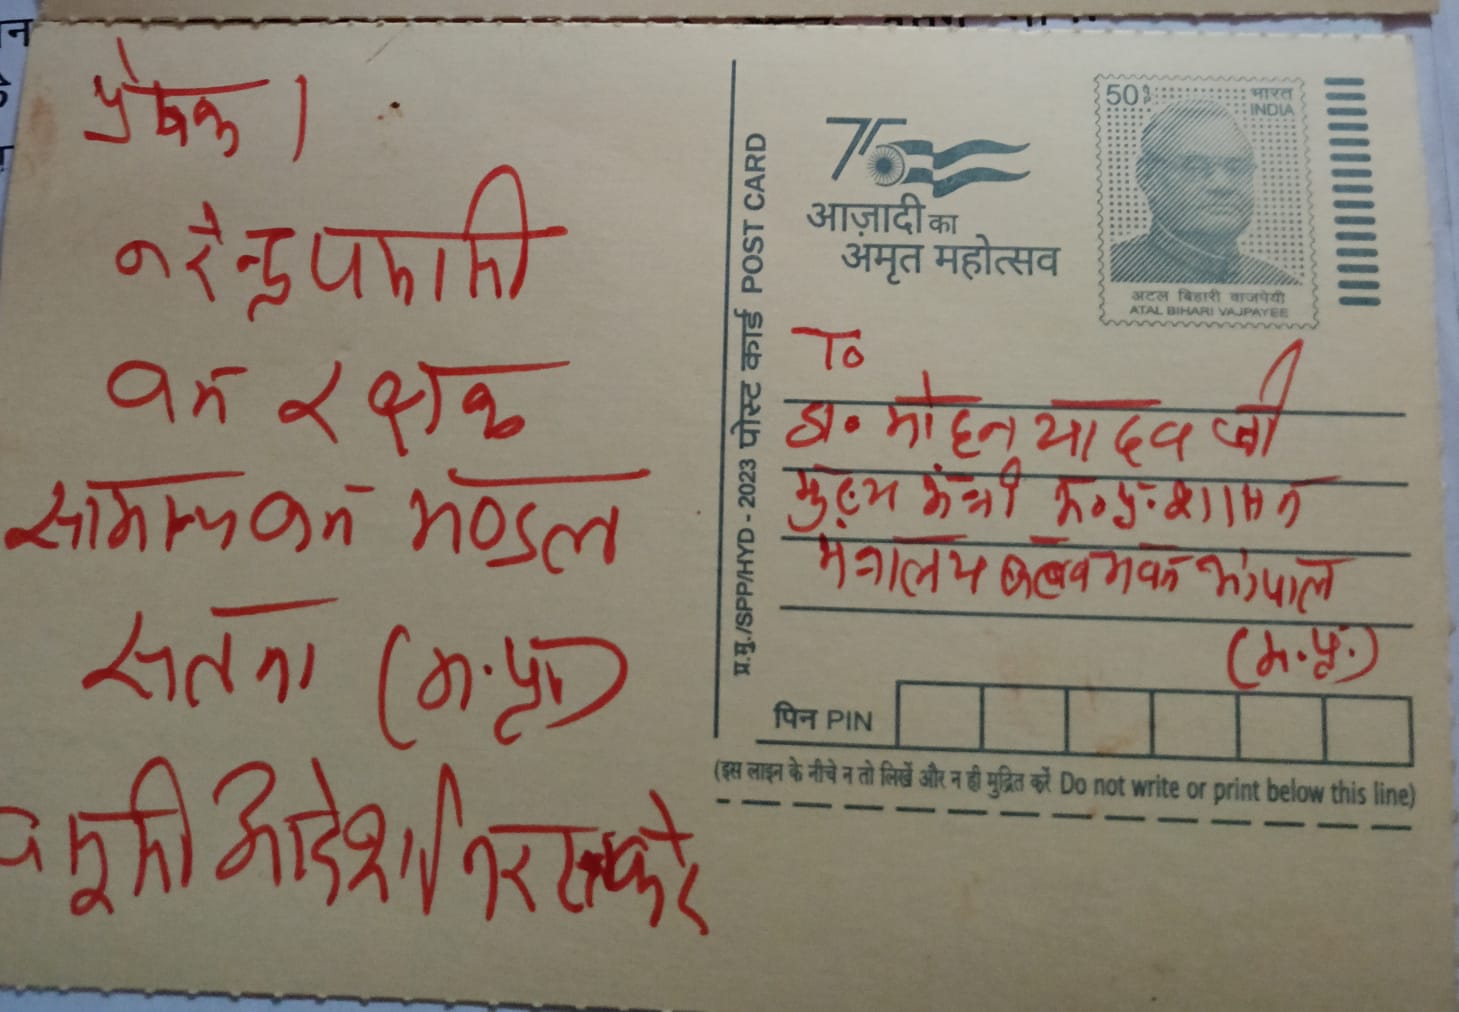 प्रेषक।
नरेन्द्र
वन रक्षक
सामान्य वन मण्डल
सतना (म.प्र.)
आदेश निरस्त करे
प्र.मु./SPP/HYD - 2023 पोस्ट कार्ड POST CARD
75
आज़ादी का
अमृत महोत्सव
50
भारत
INDIA
अटल बिहारी वाजपेयी
ATAL BIHARI VAJPAYEE
To
डा. मोहन यादव जी
मुख्य मंत्री म.प्र. शासन
मंत्रालय भोपाल
(म.प्र.)
पिन PIN
(इस लाइन के नीचे न तो लिखें और न ही मुद्रित करें Do not write or print below this line)